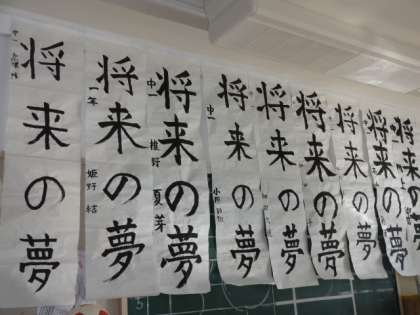 将来の夢
中一
将来の夢
一年
姫野 結
将来の夢
中一
椎野 夏芽
将来の夢
中一
将来の夢
将来の夢
将来の夢
将来の夢
将来の夢